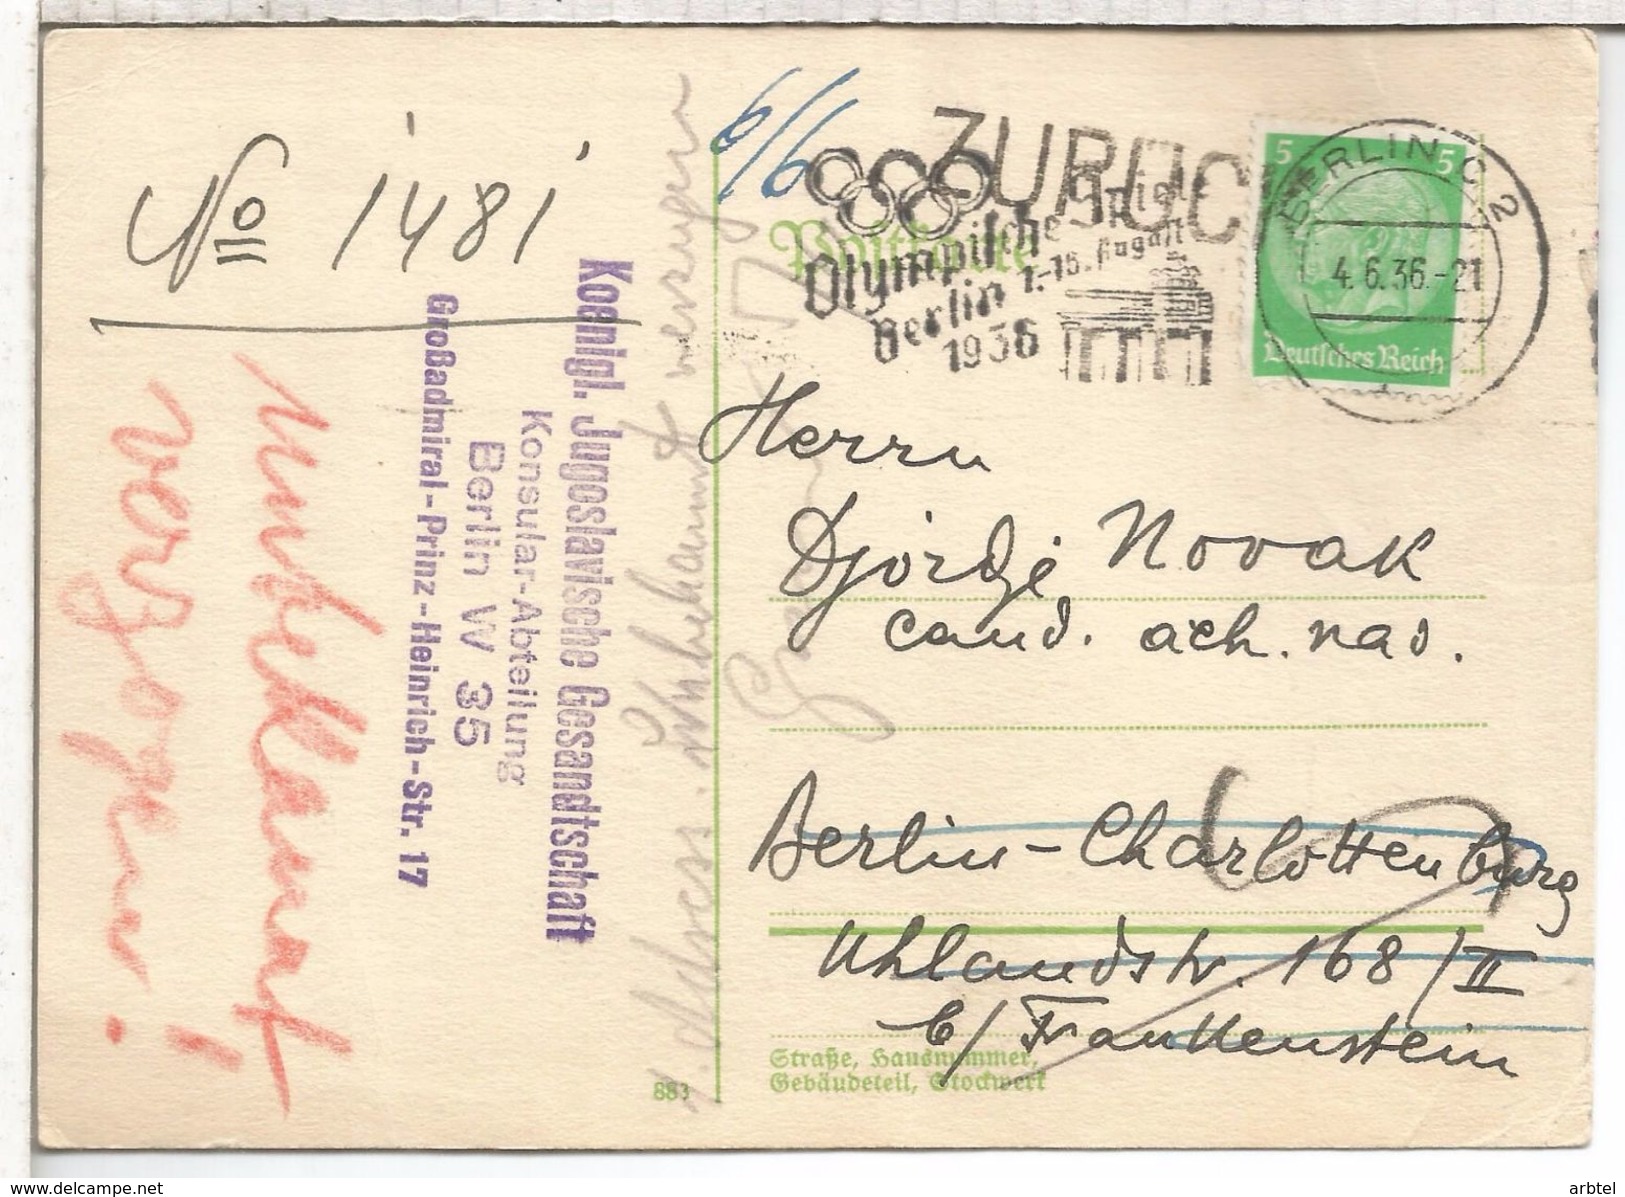 No 1481
unbekannt
verzogen!
Koenigl. Jugoslavische Gesandtschaft
Konsular-Abteilung
Berlin W 35
Großadmiral-Prinz-Heinrich-Str. 17
6/6
ZURÜCK
Postkarte
Olympische Spiele
Berlin 1.-16. August
1936
BERLIN C 2
4.6.36.-21
5 5
Deutsches Reich
Herrn
Djordje Novak
cand. ach. nas.
Berlin-Charlottenburg
Uhlandstr. 168/II
b/Frankenstein
Straße, Hausnummer,
Gebäudeteil, Stockwerk
883
unbekannt verzogen
www.delcampe.net
arbtel